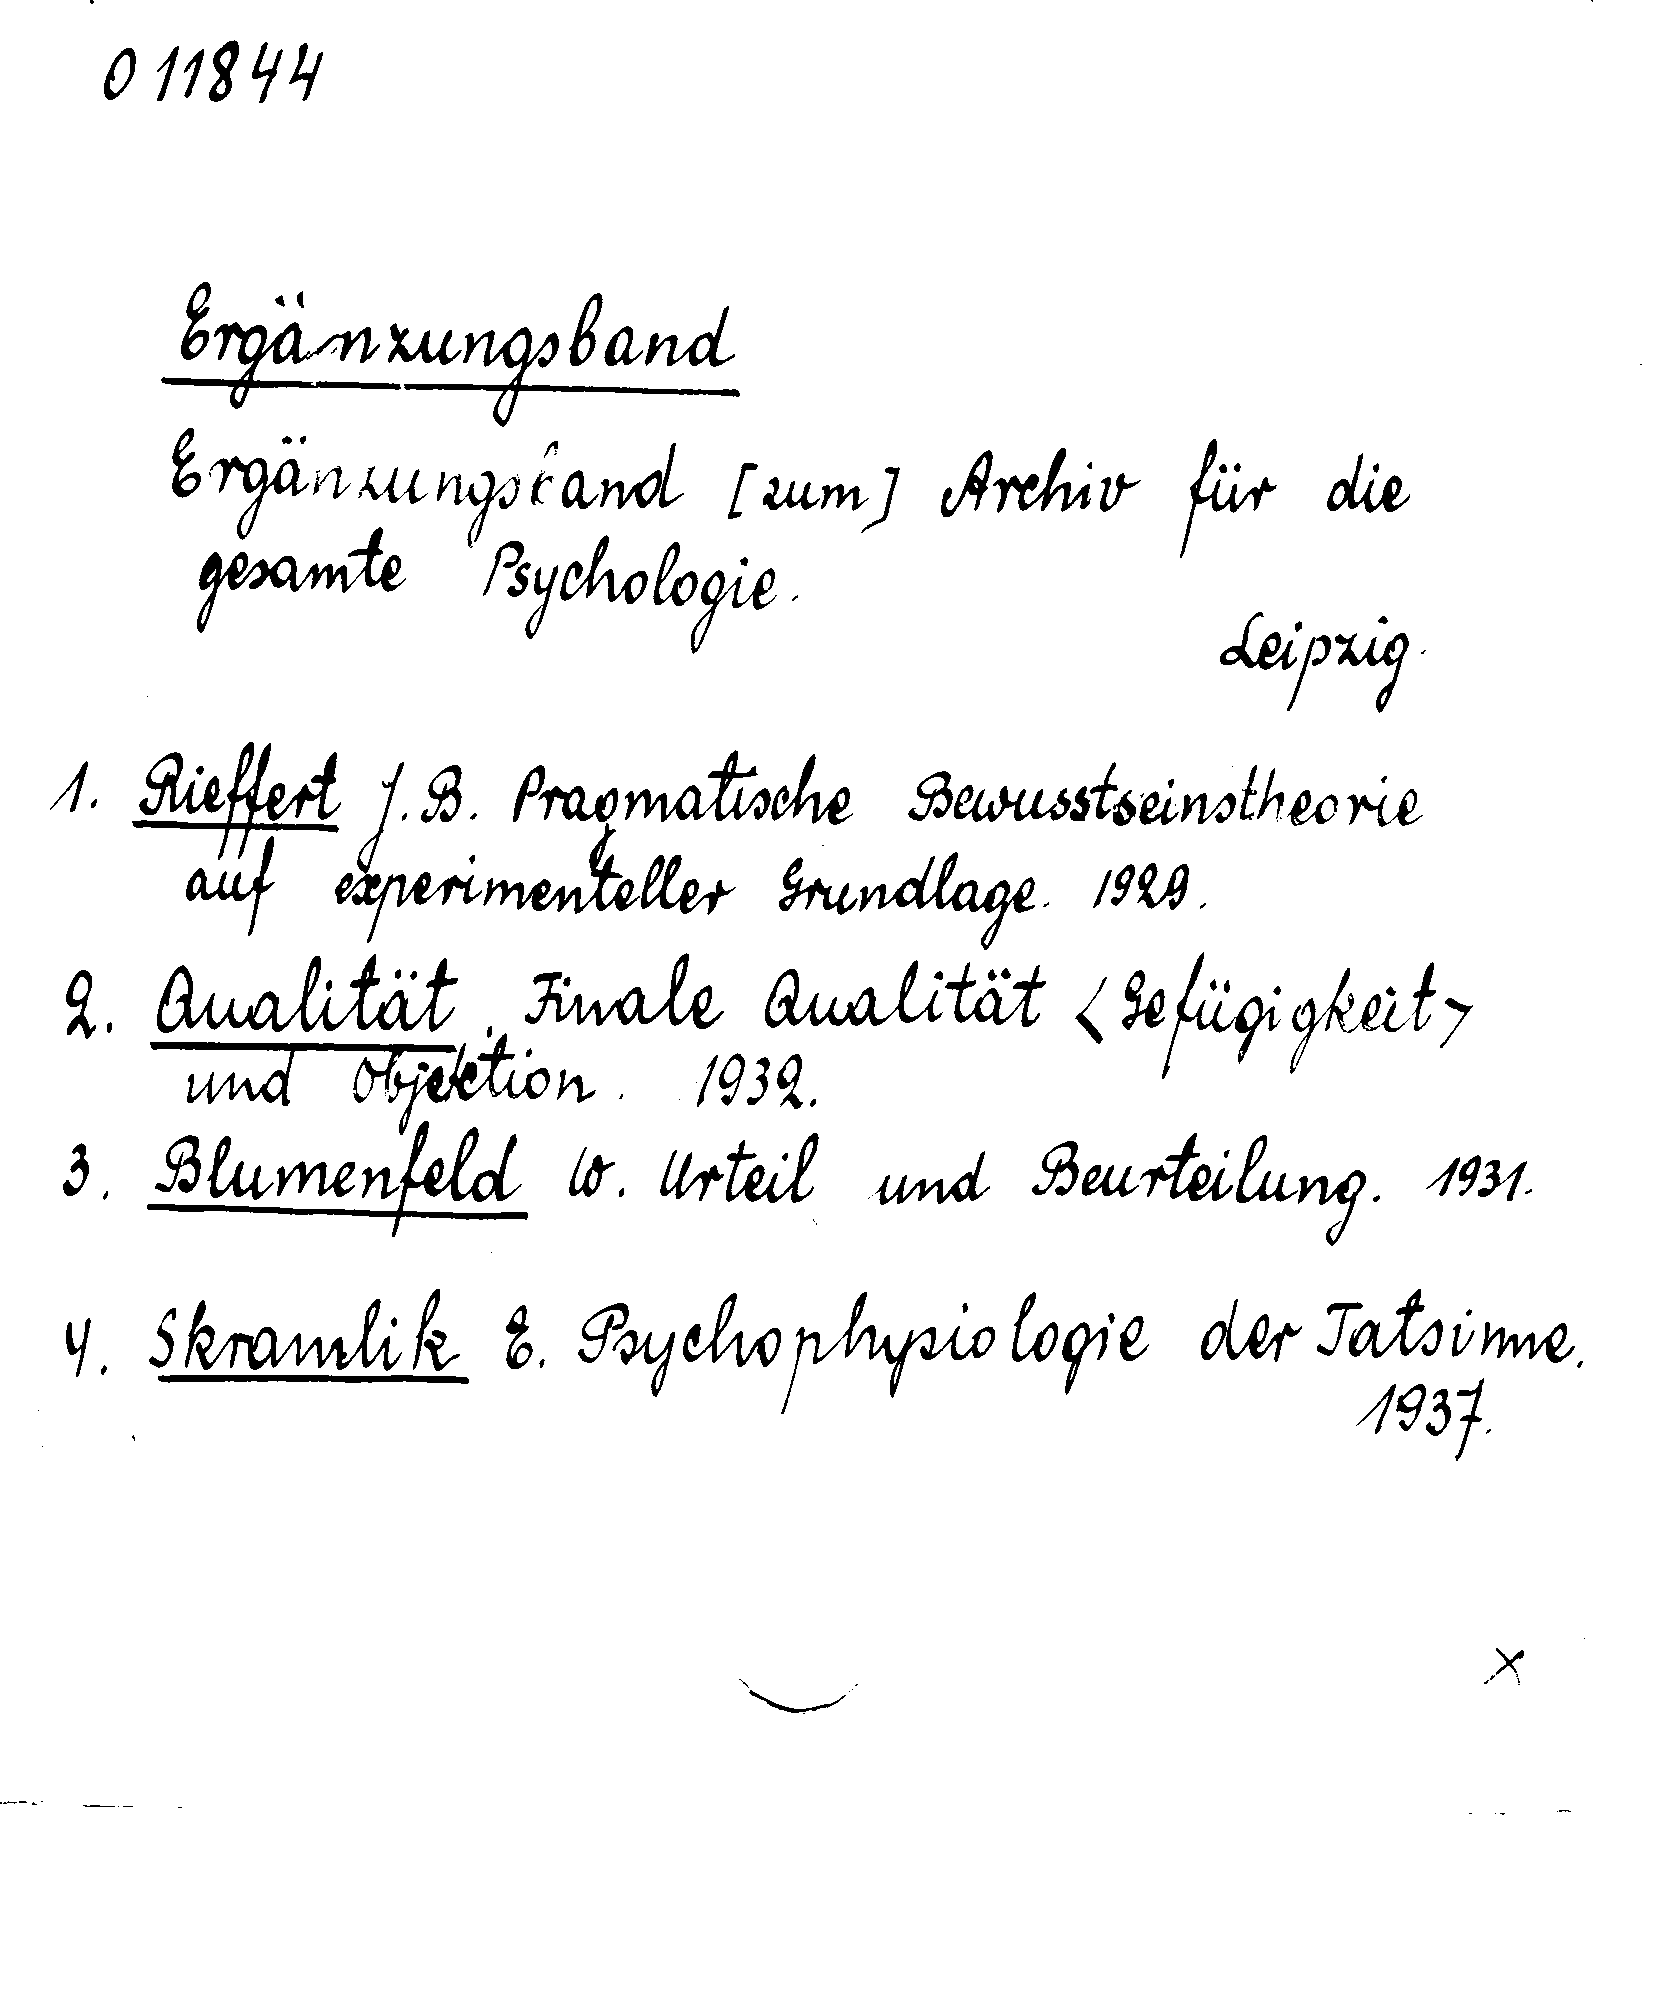 011844
Ergänzungsband
Ergänzungsband [zum] Archiv für die
gesamte Psychologie.
Leipzig.
1. Rieffert J. B. Pragmatische Bewusstseinstheorie
auf experimenteller Grundlage. 1929.
2. Qualität. Finale Qualität <Gefügigkeit>
und Objektion. 1932.
3. Blumenfeld W. Urteil und Beurteilung. 1931.
4. Skramlik E. Psychophysiologie der Tatsinne.
1937.
x